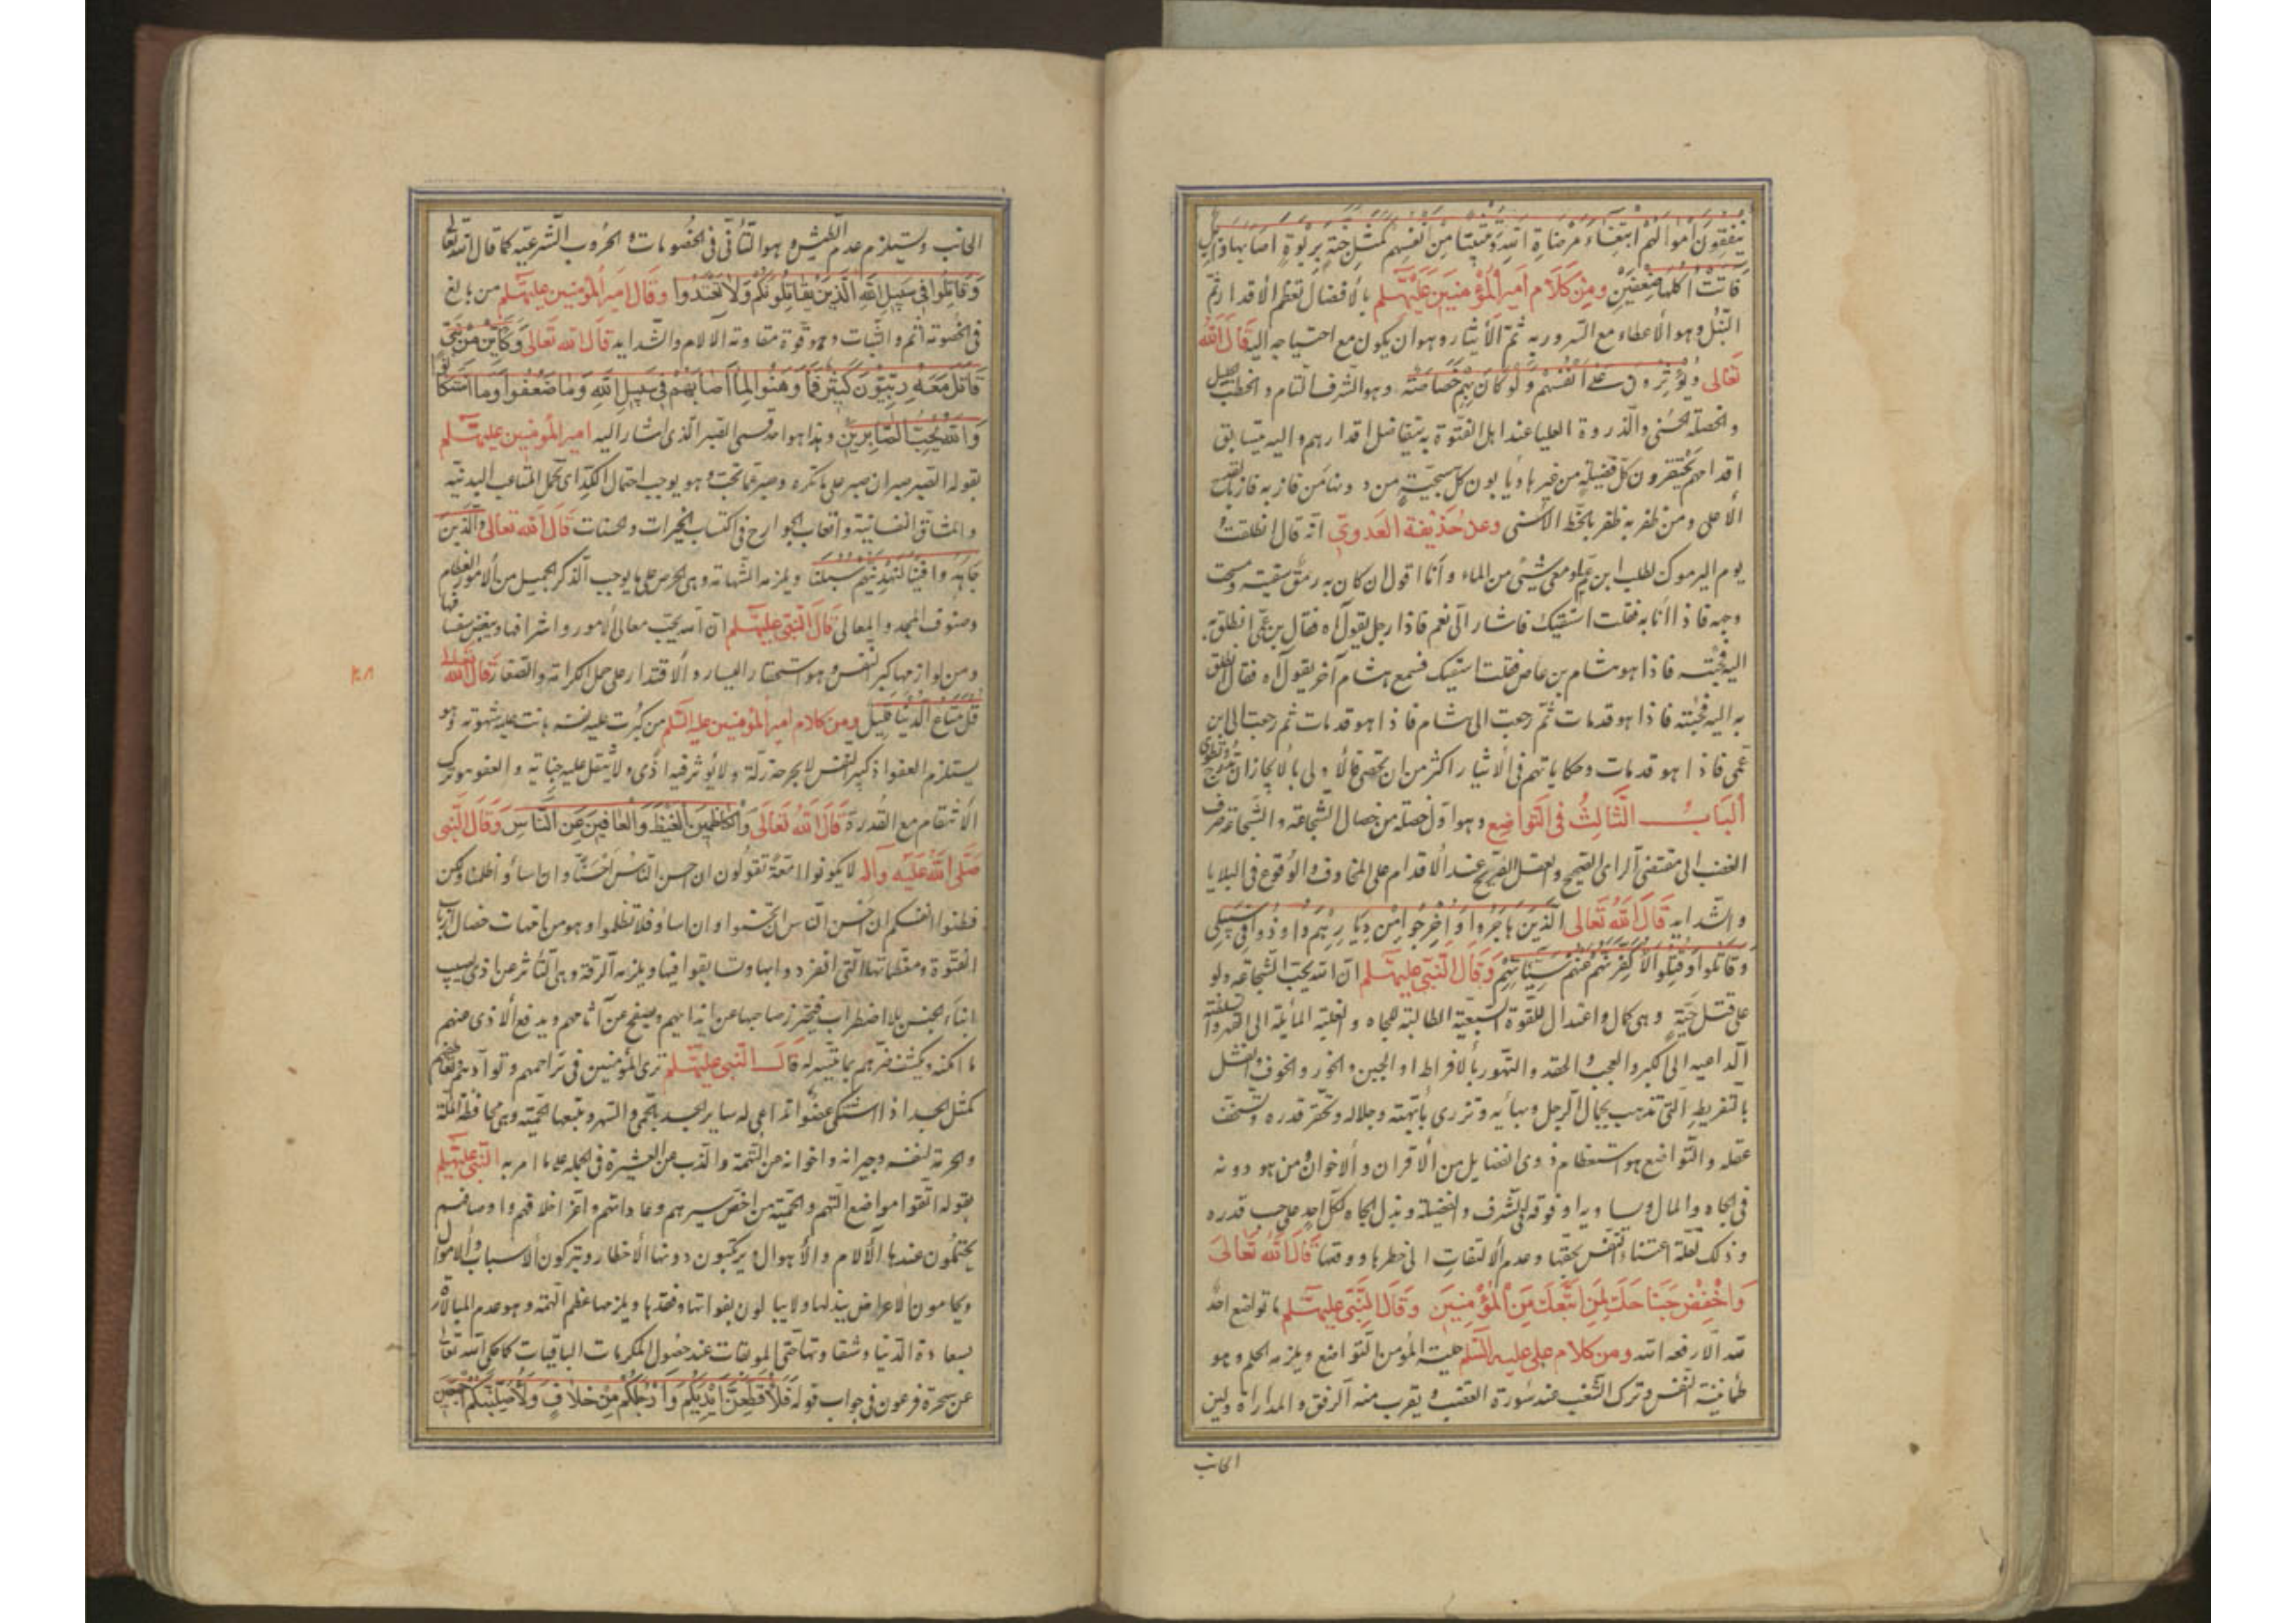 ينفقون أموالهم ابتغاء مرضاة الله وتثبيتا من أنفسهم كمثل جنة بربوة أصابها وابل
فآتت أكلها ضعفين ومن كلام أمير المؤمنين عليه السلم بالأفضال تعظم الأقدار ثم
النبل وهو الأعطاء مع السرور به ثم الأيثار وهو ان يكون مع احتياجه اليه قال الله
تعالى ويؤثرون على أنفسهم ولو كان بهم خصاصة وهو الشرف التام والخطب الجليل
والخصلة الحسنى والذروة العليا عند اهل الفتوة به يتفاضل اقدارهم واليه يتسابق
اقدامهم يحتقرون كل فضيلة من غيرها ويأبون كل سجية من دونها من فاز به فاز بالنصيب
الأعلى ومن ظفر به ظفر بالحظ الأسنى وعن حذيفة العدوي انه قال انطلقت
يوم اليرموك لطلب ابن عم لي ومعي شئ من الماء وأنا اقول ان كان به رمق سقيته ومسحت
وجهه فاذا انا به فقلت اسقيك فاشار الي نعم فاذا رجل يقول آه فقال بن عمي انطلق به
اليه فجئته فاذا هو هشام بن عاص فقلت اسقيك فسمع هشام آخر يقول آه فقال انطلق
به اليه فجئته فاذا هو قد مات ثم رجعت الى هشام فاذا هو قد مات ثم رجعت الى ابن
عمي فاذا هو قد مات وحكاياتهم في الأيثار اكثر من ان تحصى فالأولى بالايجاز ان
الباب الثالث في التواضع وهو اول خصلة من خصال الشجاعة والشجاعة صرف
الغضب الى مقتضى الراى الصحيح والعقل الصريح عند الأقدام على المخاوف والوقوع في البلايا
والشدايد قال الله تعالى الذين هاجروا وأخرجوا من ديارهم وأوذوا في سبيلي
وقاتلوا وقتلوا لأكفرن عنهم سيئاتهم وقال النبي عليه السلم ان الله يحب الشجاعة ولو
على قتل حية وهي كمال واعتدال للقوة السبعية الطالبة للجاه والغلبة المائلة الى القهر
الداعيه الى الكبر والعجب والحقد والتهور بالافراط او الجبن والخور والخوف والفشل
بالتفريط التي تذهب بجمال الرجل وبهائه وتزرى بأبهته وجلاله وتحقر قدره وتسخف
عقله والتواضع هو استعظام ذوى الفضايل من الأقران والأخوان ومن هو دونه
في الجاه والمال ويساويه او فوقه في الشرف والفضيلة وبذل الجاه لكل احد على حسب قدره
وذلك لقلة اعتناء النفس بحقها وعدم الالتفات الى خطرها ووقعها قال الله تعالى
واخفض جناحك لمن اتبعك من المؤمنين وقال النبي عليه السلم ما تواضع احد
لله الا رفعه الله ومن كلام علي عليه السلم حلية المؤمن التواضع ويلزمه الحلم وهو
طمأنينة النفس وترك الشغب عند سورة الغضب ويقرب منه الرفق والمداراة ولين
الجانب
الجانب ويستلزم عدم الطيش وهو التأني في الخصومات والحروب الشرعية كما قال الله تعالى
وقاتلوا في سبيل الله الذين يقاتلونكم ولا تعتدوا وقال امير المؤمنين عليه السلم من بالغ
في الخصومة أثم والثبات وهو قوة مقاومة الآلام والشدايد قال الله تعالى وكأين من نبي
قاتل معه ربيون كثير فما وهنوا لما أصابهم في سبيل الله وما ضعفوا وما استكانوا
والله يحب الصابرين وهذا هو احد قسمي الصبر الذي اشار اليه امير المؤمنين عليه السلم
بقوله الصبر صبران صبر على ما تكره وصبر عما تحب وهو يوجب احتمال الكد اى تحمل المتاعب البدنية
والمشاق النفسانية واتعاب الجوارح في اكتساب الخيرات والحسنات قال الله تعالى والذين
جاهدوا فينا لنهدينهم سبلنا ويلزمه الشهامة وهي الحرص على ما يوجب الذكر الجميل من الأمور العظام
وصنوف المجد والمعالي قال النبي عليه السلم ان الله يحب معالي الأمور واشرافها ويبغض سفسافها
ومن لوازمها كبر النفس وهو استحقار اليسار والاقتدار على حمل الكرامة والصغار قال الله تعالى
قل متاع الدنيا قليل ومن كلام أمير المؤمنين عليه السلم من كبرت عليه نفسه هانت عليه شهوته وهو
يستلزم العفو اذ كبير النفس لا يجرحه زلة ولا يؤثر فيه اذى ولا يثقل عليه جناية والعفو هو ترك
الأنتقام مع القدرة قال الله تعالى والكاظمين الغيظ والعافين عن الناس وقال النبي
صلى الله عليه وآله لا يكونوا امعة تقولون ان احسن الناس احسنا وان اساؤا ظلمنا ولكن
وطنوا انفسكم ان احسن الناس ان تحسنوا وان اساؤا فلا تظلموا وهو من امهات خصال ارباب
الفتوة ومعظماتها التي انفردوا بها وتسابقوا فيها ويلزمه الرقة وهي التأثر عن اذى يصيب
ابناء الجنس بلا اضطراب فيحترز صاحبها عن ايذائهم ويصفح عن آثامهم ويدفع الأذى عنهم
ما امكنه ويكشف ضرهم بما تيسر له قال النبي عليه السلم ترى المؤمنين في تراحمهم وتوادهم وتعاطفهم
كمثل الجسد اذا اشتكى عضوا تداعى له ساير الجسد بالحمى والسهر ويتبعها الحمية وهي محافظة الملة
والحرمة لنفسه وجيرانه واخوانه من التهمة والذب عن العشيرة في الجملة على ما امر به النبي عليه السلم
بقوله اتقوا مواضع التهم والحمية من اخص سيرهم وعاداتهم واعز اخلاقهم واوصافهم
يحتملون عندها الآلام والأهوال ويرتكبون دونها الأخطار ويتركون الأسباب والأموال
ويحامون الاعراض ببذلها ولا يبالون بفواتها وفقدها ويلزمها عظم الهمة وهو عدم المبالاة
بسعادة الدنيا وشقاوتها حتى الموبقات عند حصول المكرمات الباقيات كما حكى الله تعالى
عن سحرة فرعون في جواب قوله فلأقطعن أيديكم وأرجلكم من خلاف ولأصلبنكم أجمعين